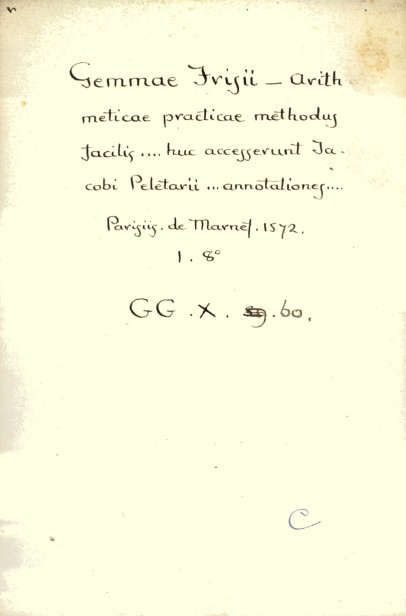 Gemmae Frisii — Arith
meticae practicae methodus
facilis .... huc accesserunt Ja-
cobi Peletarii ... annotationes....
Parisiis. de Marnef. 1572.
1. 8°
GG . X . 60.
C